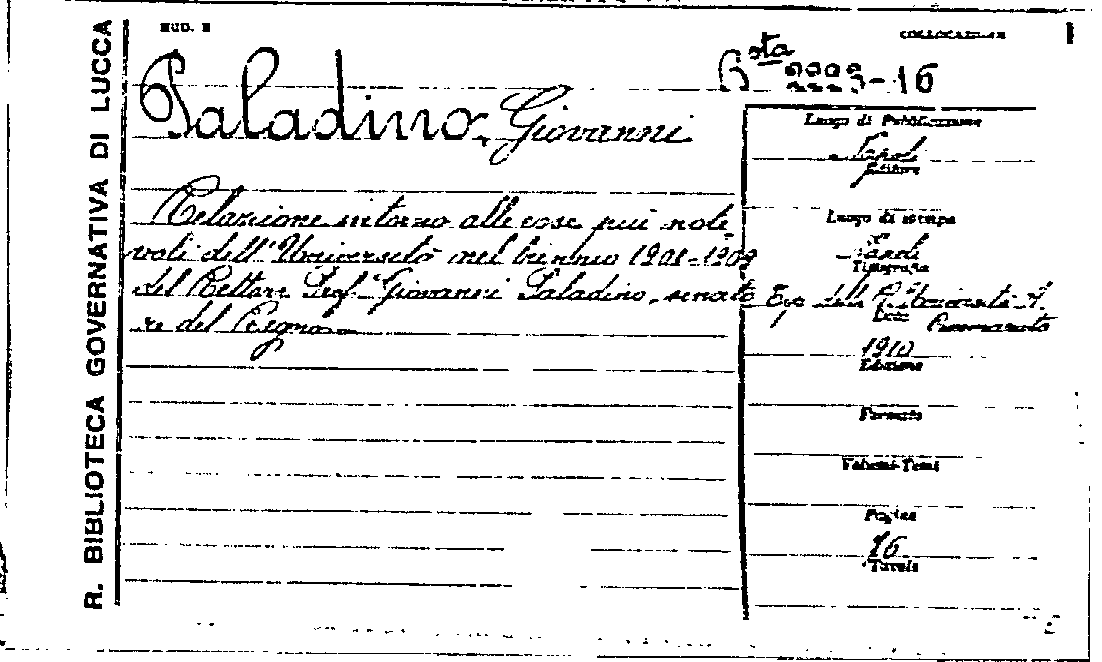 R. BIBLIOTECA GOVERNATIVA DI LUCCA
MOD. E
COLLOCAZIONE
Bsta 2223-16
Paladino, Giovanni
Relazione intorno alle cose piú note
voli dell'Universitá nel biennio 1901-1909
del Rettore Prof. Giovanni Paladino, senato
re del Regno
Luogo di Pubblicazione
Napoli
Editore
Luogo di stampa
Napoli
Tipografia
Tip. della R. Università A.
Data
1910
Edizione
Formato
Volumi-Tomi
Pagine
16
Tavole